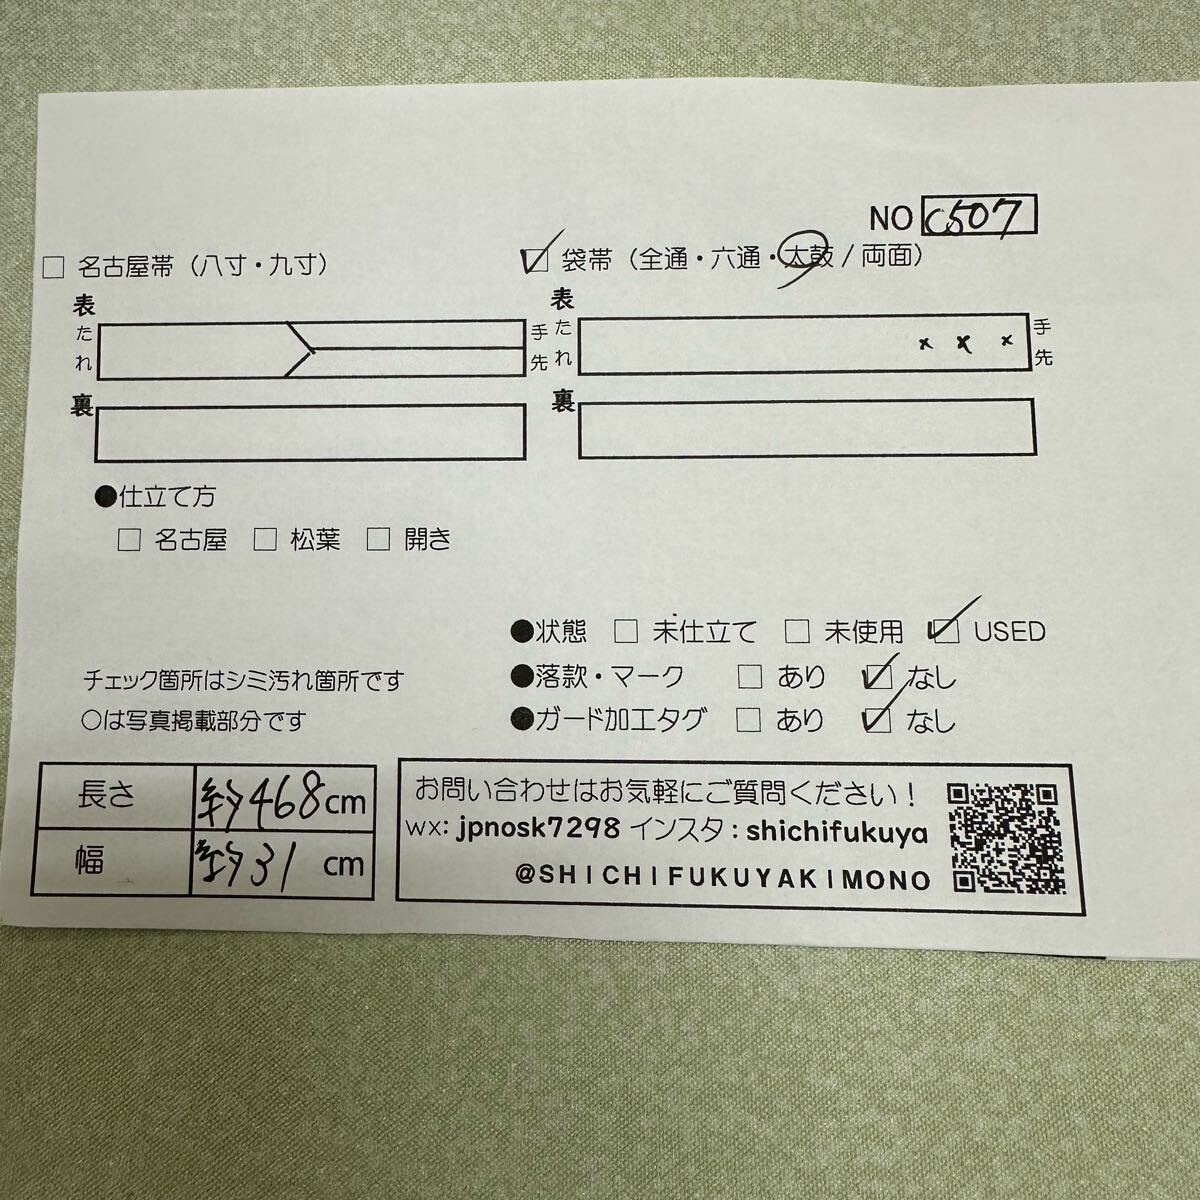 NO C507
□ 名古屋帯（八寸・九寸）
☑ 袋帯（全通・六通・太鼓/両面）
表
たれ
手先
裏
表
たれ
× × ×
手先
裏
●仕立て方
□ 名古屋 □ 松葉 □ 開き
●状態 □ 未仕立て □ 未使用 ☑ USED
●落款・マーク □ あり ☑ なし
●ガード加工タグ □ あり ☑ なし
チェック箇所はシミ汚れ箇所です
○は写真掲載部分です
長さ 約468cm
幅 約31 cm
お問い合わせはお気軽にご質問ください！
wx: jpnosk7298 インスタ：shichifukuya
@SHICHIFUKUYAKIMONO